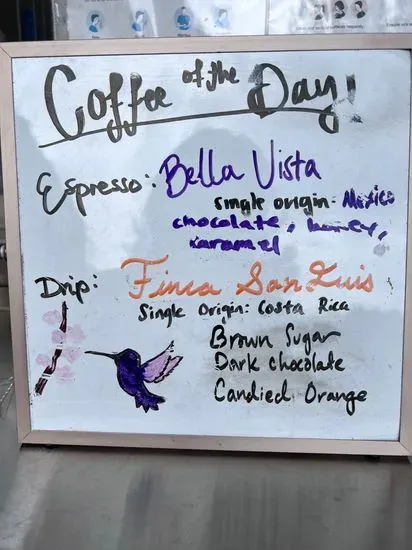 Coffee of the Day!
Espresso: Bella Vista
single origin- Mexico
chocolate, honey,
karamel
Drip: Finca San Luis
Single Origin: Costa Rica
Brown Sugar
Dark Chocolate
Candied Orange